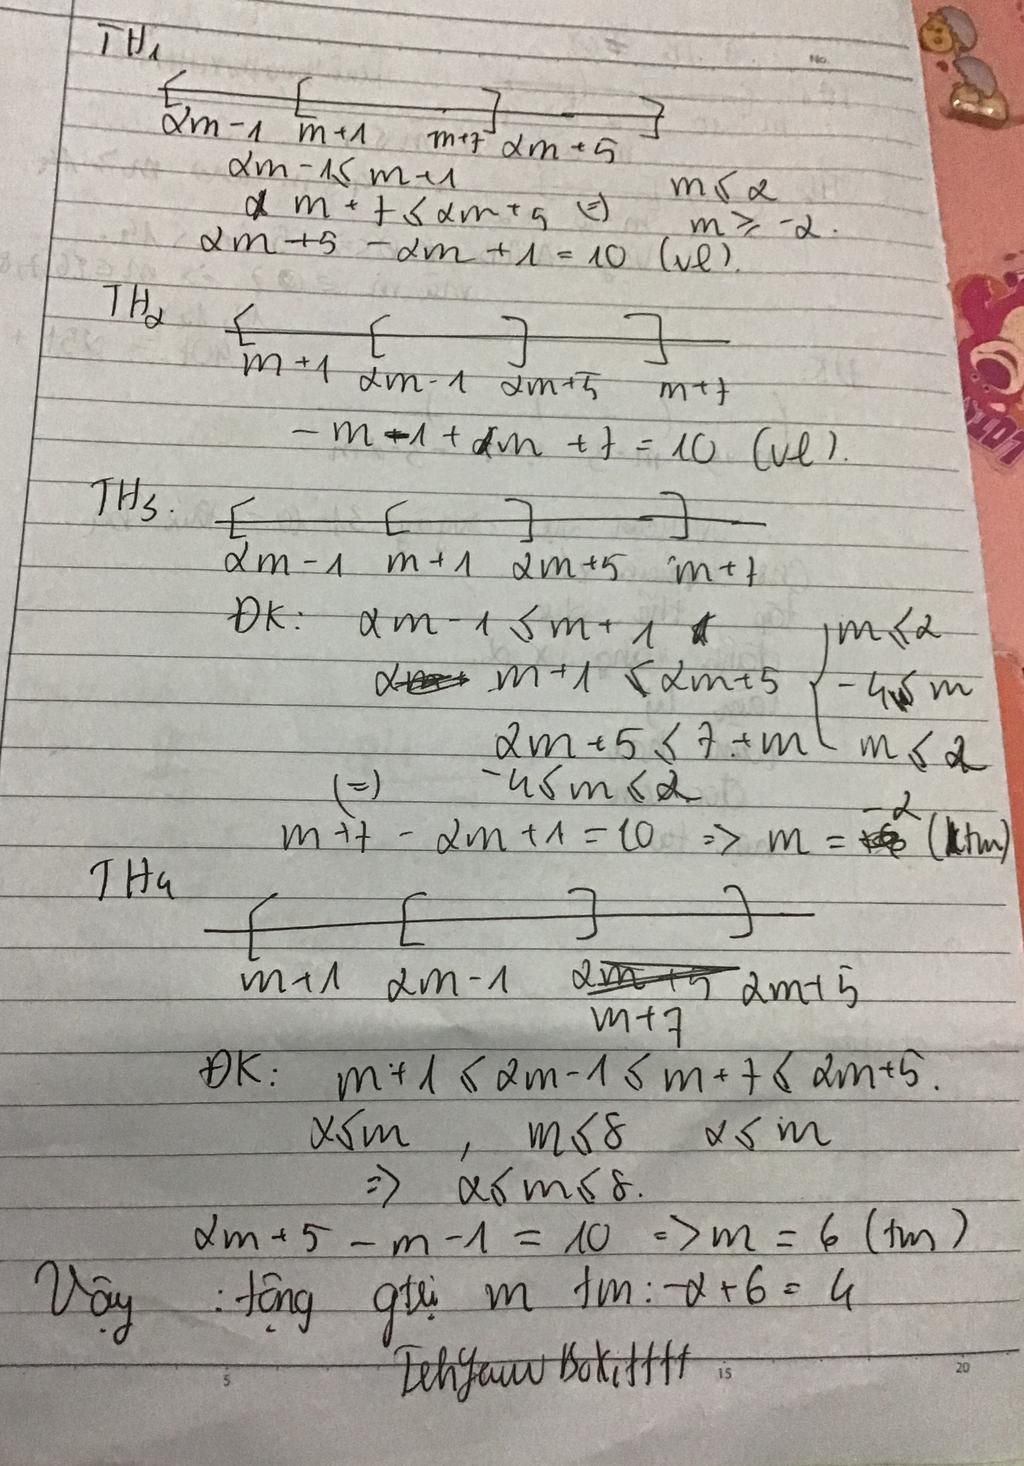 No.
TH1
2m-1 m+1 m+7 2m+5
2m-1 ≤ m+1 m ≤ 2
m+7 ≤ 2m+5 (=) m ≥ -2.
2m+5 - 2m + 1 = 10 (vl).
TH2
m+1 2m-1 2m+5 m+7
- m - 1 + m + 7 = 10 (vl).
TH3.
2m-1 m+1 2m+5 m+7
ĐK: 2m-1 ≤ m+1 m ≤ 2
m+1 ≤ 2m+5 -4 ≤ m
2m+5 ≤ 7+m m ≤ 2
(=) -4 ≤ m ≤ 2
m+7 - 2m+1 = 10 => m = -2 (tm)
TH4
m+1 2m-1 2m+5 2m+5
m+7
ĐK: m+1 ≤ 2m-1 ≤ m+7 ≤ 2m+5.
2 ≤ m , m ≤ 8 2 ≤ m
=> 2 ≤ m ≤ 8.
2m+5 - m - 1 = 10 => m = 6 (tm)
Vậy : tổng gtrị m tm: -2+6 = 4
5 15 20